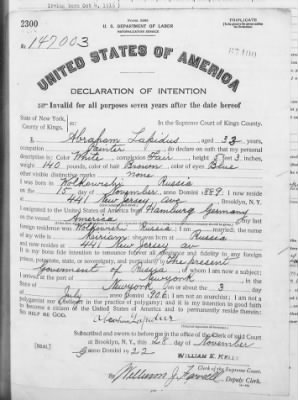 Irving born Oct 4, 1915
Form 2203
2300
U. S. DEPARTMENT OF LABOR
NATURALIZATION SERVICE
TRIPLICATE
No. 147003
UNITED STATES OF AMERICA
DECLARATION OF INTENTION
Invalid for all purposes seven years after the date hereof
State of New York,
County of Kings,
ss:
In the Supreme Court of Kings County.
I, Abraham Lapidus, aged 33 years,
occupation Painter, do declare on oath that my personal
description is: Color White, complexion Fair, height 5 feet 3 inches,
weight 140 pounds, color of hair Brown, color of eyes Blue
other visible distinctive marks none
I was born in Wolkowshj Russia
on the 15 day of November, anno Domini 1889; I now reside
at 441 New Jersey ave, Brooklyn, N. Y.
I emigrated to the United States of America from Hamburg Germany
on the vessel America; my last
foreign residence was Wolkowshj Russia; I am married; the name
of my wife is Miriam; she was born in Russia
and now resides at 441 New Jersey av
It is my bona fide intention to renounce forever all allegiance and fidelity to any foreign
prince, potentate, state, or sovereignty, and particularly to The present
Government of Russia, of whom I am now a subject;
I arrived at the port of New york, in the
State of New york, on or about the 3 day
of July, anno Domini 1906; I am not an anarchist; I am not a
polygamist nor a believer in the practice of polygamy; and it is my intention in good faith
to become a citizen of the United States of America and to permanently reside therein:
SO HELP ME GOD.
Abraham Lapidus
Subscribed and sworn to before me in the office of the Clerk of said Court
at Brooklyn, N. Y., this 28 day of November
anno Domini 1922
[SEAL]
WILLIAM E. KELLY
Clerk of the Supreme Court.
By William J. Farrell, Deputy Clerk.